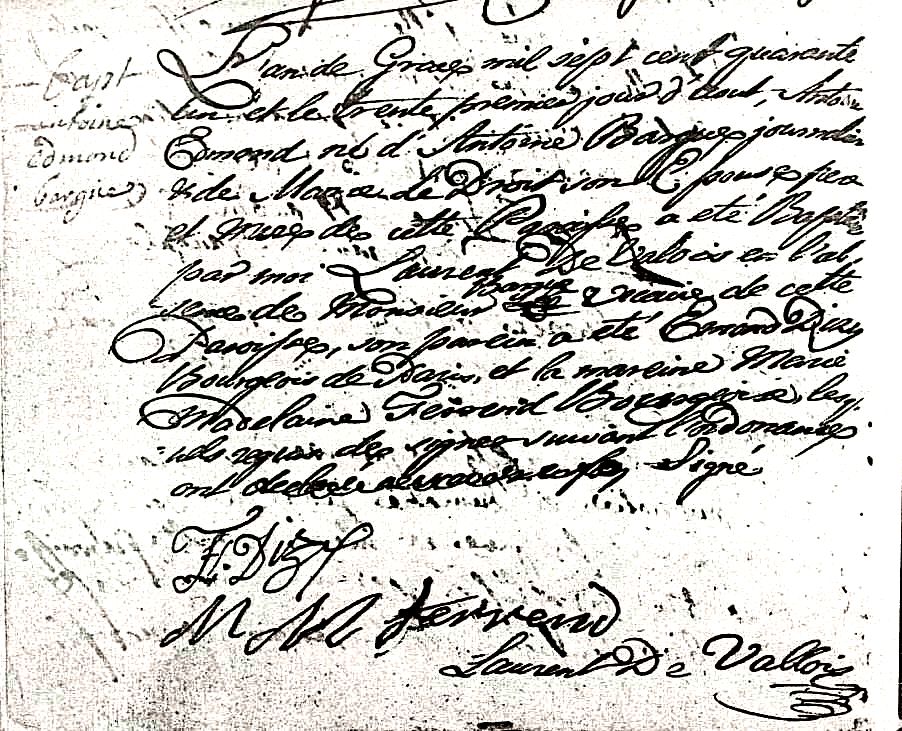 Bapt
antoine
Edmond
bargue
L'an de Grace mil sept cent quarante
un et le trente premier jour d'aout, Antoine
Emond né d'Antoine Bargue journalier
& de Marie de Droit son Epouse pere
et mere de cette Paroisse a eté Baptisé
par moi Laurent De Vallois en l'ab
sence de Monsieur Bargue vicaire de cette
Paroisse, son parein a eté Emond Dizy
Bourgeois de Paris, et la mareine Marie
Madelaine Ferrend Bourgeoise, lesq.
uels requis de signer suivant l'ordonnance
ont Signé
F. Dizy
M M Ferrend
Laurent De Vallois